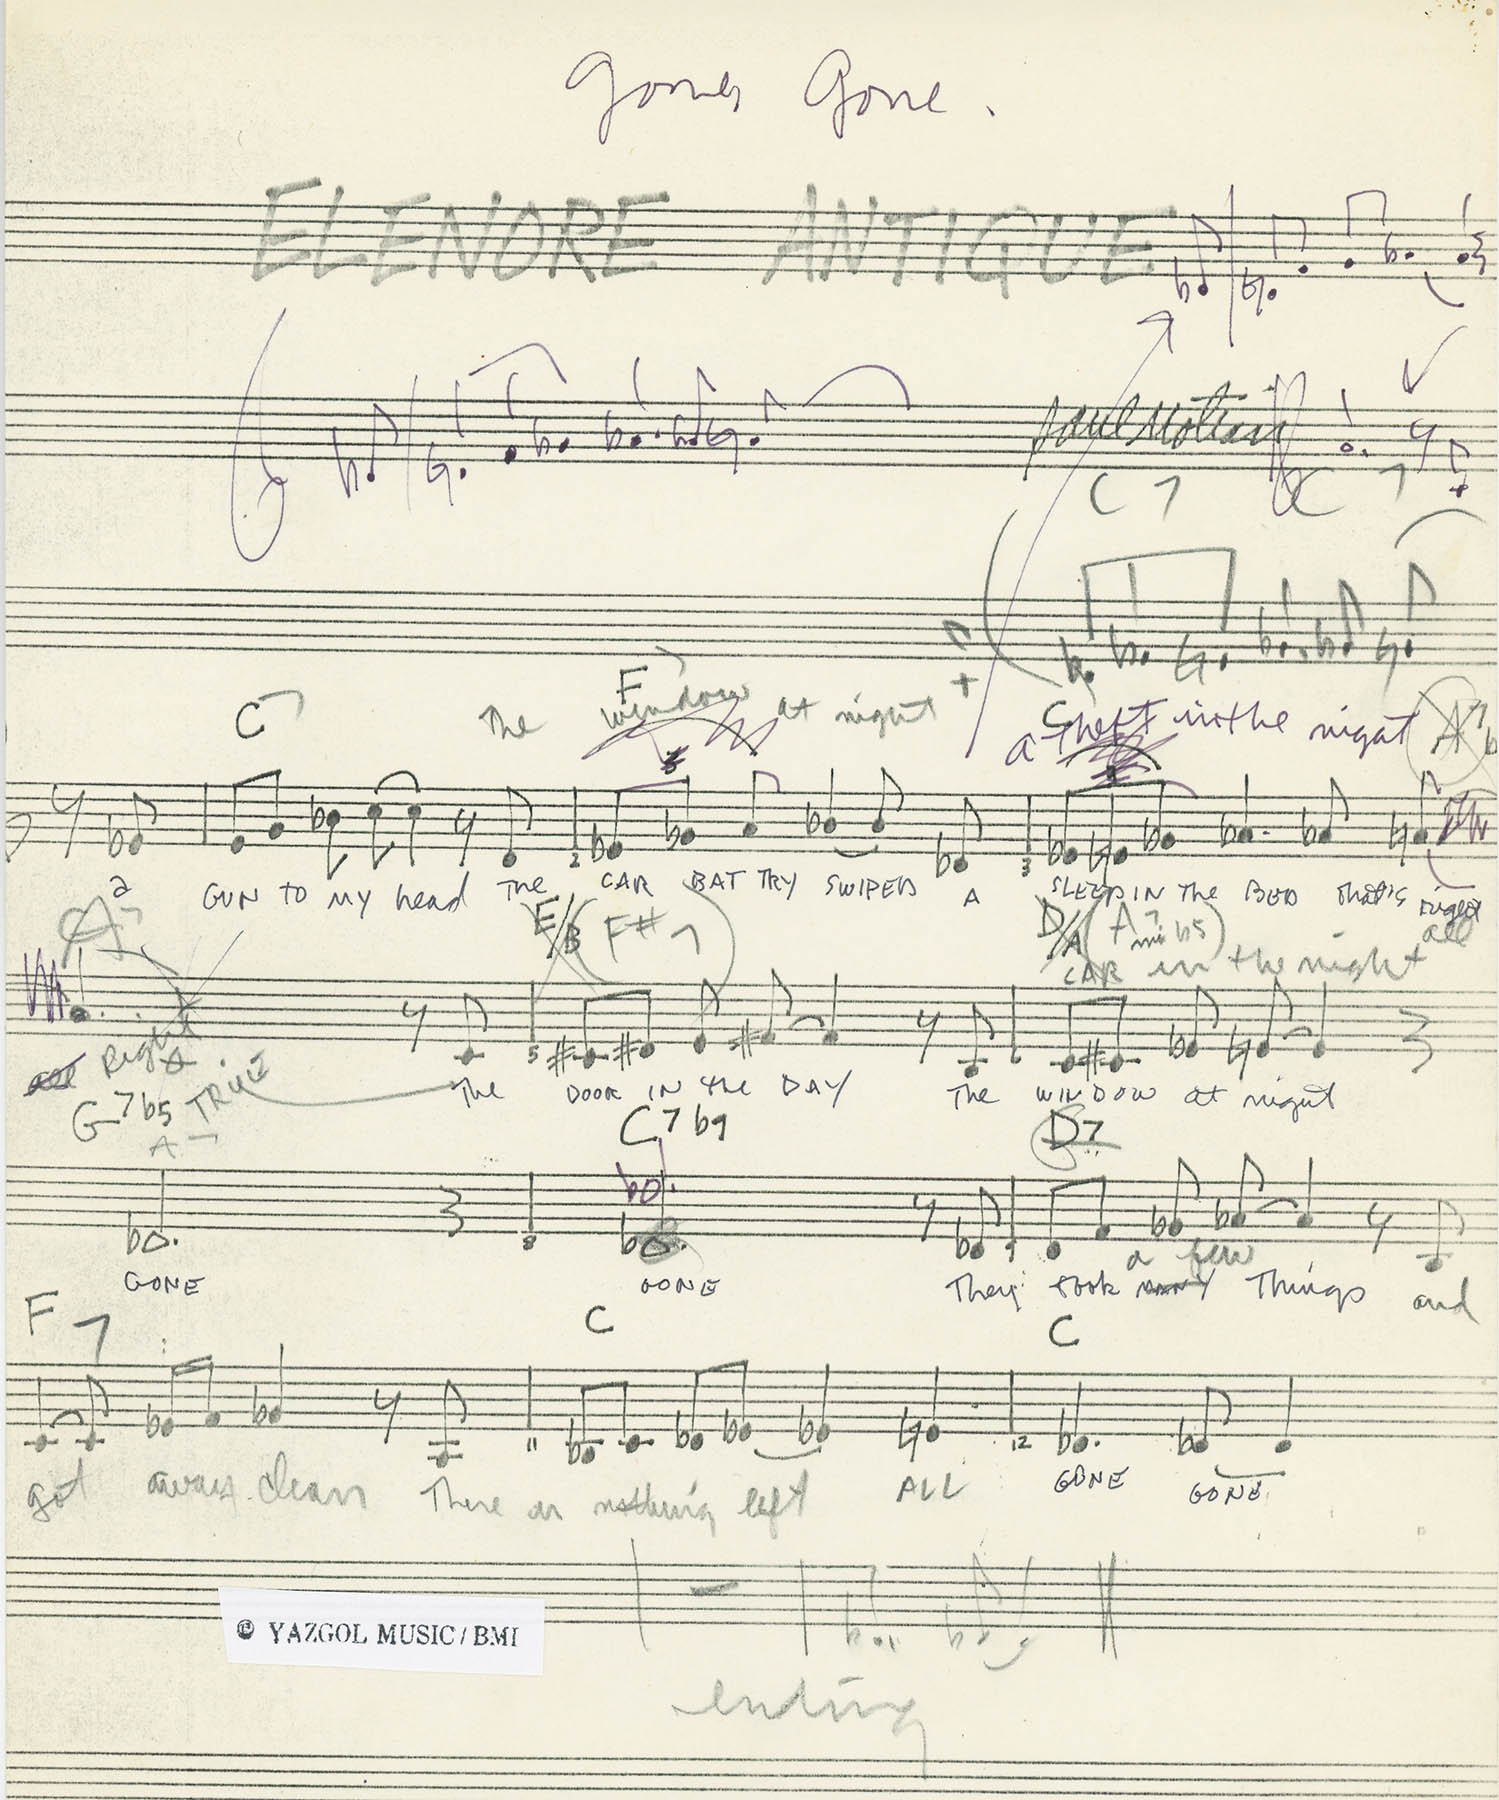 Gone.
ELENORE ANTIQUE
Paul Motian
C7 C7
The window at night
a theft in the night
C7 F7 C7 A7b
GUN TO MY head The CAR BATTRY SWIPED A SLEEP IN THE BED that's right
all
E/B F#7 D/A A7mi b5
CAR in the night
Right
The DOOR IN the DAY The WINDOW at night
G7b5 TRUE
A7 C7b9 D7
GONE GONE They took a few Things and
F7 C C
got away clean There is nothing left ALL GONE GONE
© YAZGOL MUSIC/BMI
ending